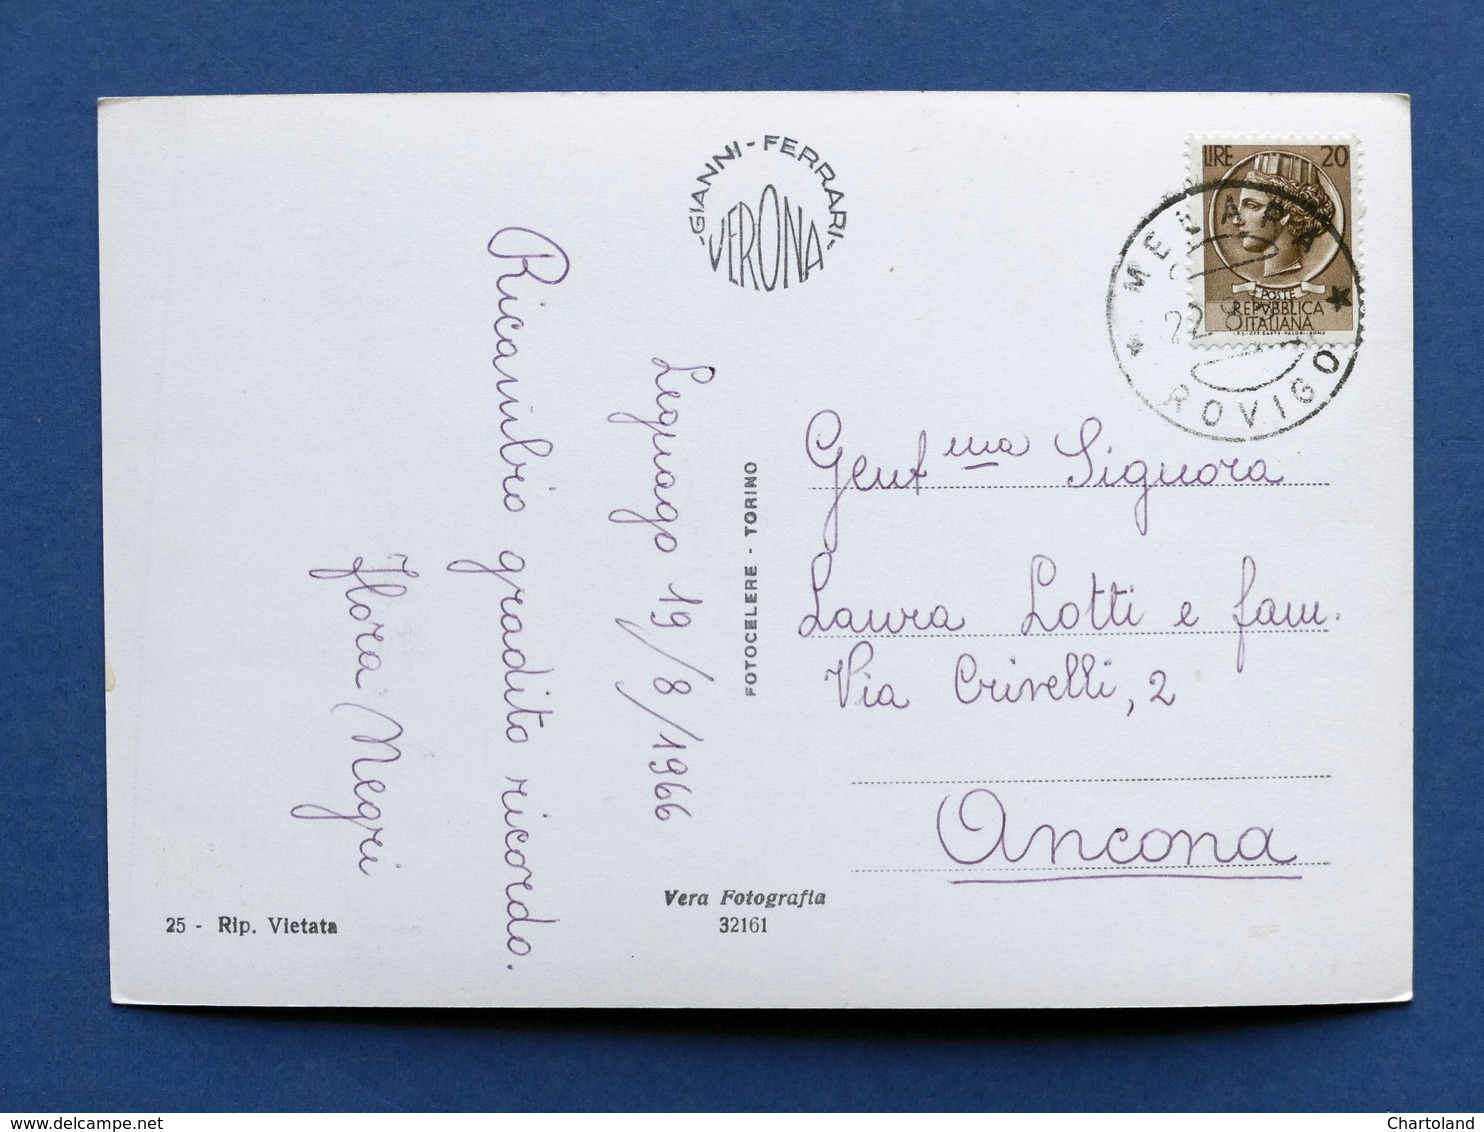 GIANNI-FERRARI-
VERONA
LIRE 20
POSTE
REPVBBLICA
ITALIANA
ROVIGO
Legnago 19/8/1966
Ricambio gradito ricordo.
Flora Negri
FOTOCELERE - TORINO
Gent ma Signora
Laura Lotti e fam.
Via Crivelli, 2
Ancona
Vera Fotografia
32161
25 - Rip. Vietata
delcampe.net
Chartoland